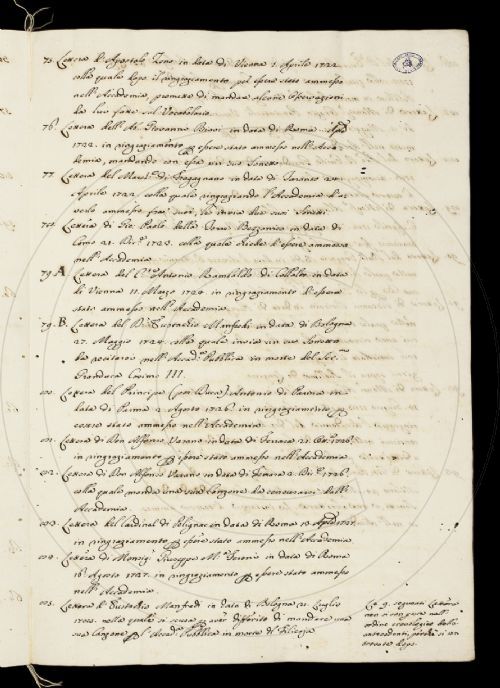 75. Lettera d'Apostolo Zeno in data di Vienna 1. Aprile 1722.
colla quale dopo il ringraziamento per essere stato ammesso
nell'Accademia, promette di mandare alcune Osservazioni
da lui fatte sul Vocabolario.
76. Lettera dell'Ab. Giovanni in data di Roma
1722. in ringraziamento essere stato ammesso nell'Acca-
demia, mandando con essa un suo Sonetto.
77. Lettera del di Fragagnano in data di Taranto
Aprile 1722. colla quale ringraziando l'Accademia d'a-
verlo ammesso suoi, le invia due suoi Sonetti.
Lettera di Gio: Paolo della Torre Rezzonico in data di
Como 21. 1723. colla quale chiede d'essere ammesso
nell'Accademia.
79. A. Lettera del Antonio Rambaldo di Collalto in data
di Vienna 11. Marzo 1724. in ringraziamento d'essere
stato ammesso nell'Accademia.
79. B. Lettera del Eustachio Manfredi in data di Bologna
27. Maggio 1724. colla quale invia un suo Sonetto
da recitarsi nell'Accad. Pubblica in morte del
Granduca Cosimo III.
Lettera del Principe (poi Duca) Antonio di Parma in
data di Parma 2. Agosto 1726. in ringraziamento
essere stato ammesso nell'Accademia.
Lettera di Don Alfonso Varano in data di Ferrara 21.
in ringraziamento essere stato ammesso nell'Accademia.
Lettera di Don Alfonso Varano in data di Ferrara 1726.
colla quale manda una sua Canzone da
Accademia.
Lettera del Cardinal di Polignac in data di Roma 1727.
in ringraziamento essere stato ammesso nell'Accademia.
Lettera di Monsig. Giuseppe M. in data di Roma
16. Agosto 1727. in ringraziamento essere stato ammesso
nell'Accademia.
Lettera d'Eustachio Manfredi in data di Bologna 21. Luglio
nella quale si scusa aver differito di mandare una
sua Canzone l'Accad. Pubblica in morte del Filicaia
segnati Lettera
non si son posti nell'
ordine cronologico delle
antecedenti, perché si son
trovate dopo.